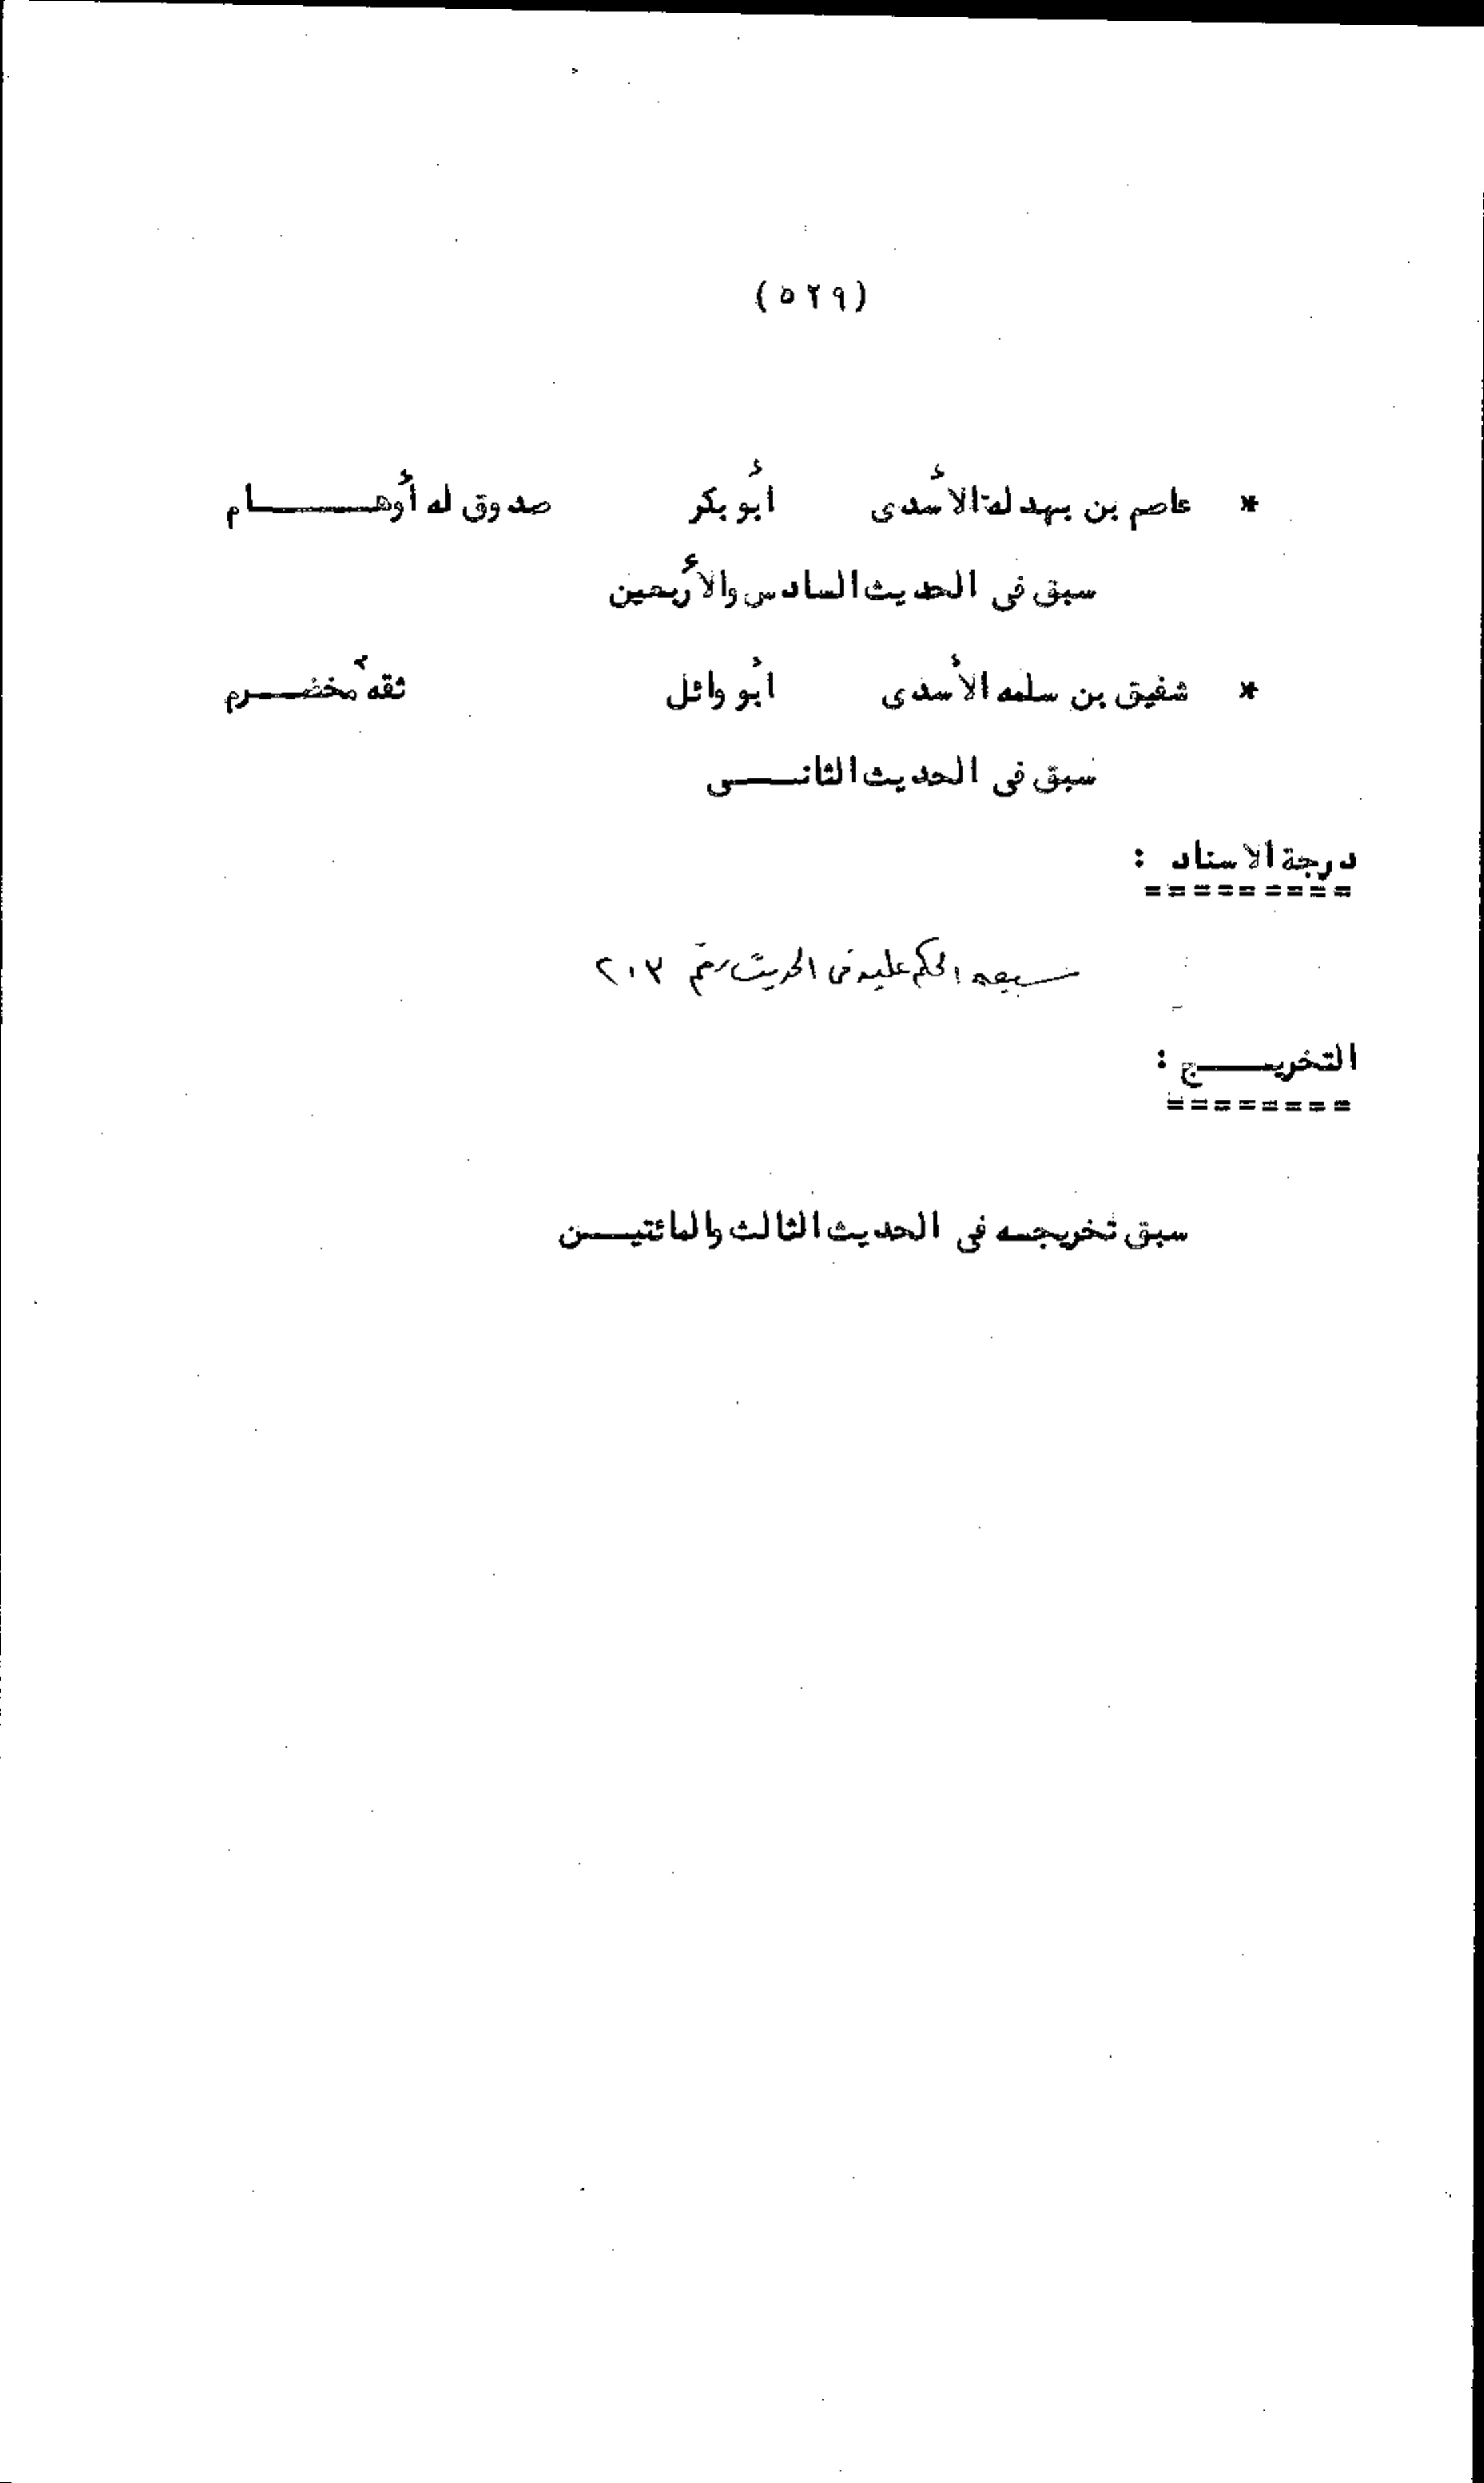 (٥٢٩)
* عاصم بن بهدلة الأسدى أبو بكر صدوق له أوهــــــام
سبق فى الحديث السادس والأربعين
* شقيق بن سلمه الأسدى أبو وائل ثقه مخضـــرم
سبق فى الحديث الثانـــى
درجة الاسناد :
=========
سبق الحكم عليه فى الحديث رقم ٢٠٣
التخريـــــج :
========
سبق تخريجـه فى الحديث الثالث والمائتيــن